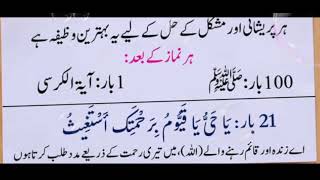 ہر پریشانی اور مشکل کے حل کے لیے یہ بہترین وظیفہ ہے
ہر نماز کے بعد:
100 بار: صَلَّى اللّٰهُ عَلَيْهِ وَسَلَّم 1 بار: آیۃ الکرسی
21 بار: یَا حَیُّ یَا قَیُّوْمُ بِرَحْمَتِکَ اَسْتَغِیْثُ
اے زندہ اور قائم رہنے والے (اللہ)، میں تیری رحمت کے ذریعے مدد طلب کرتا ہوں